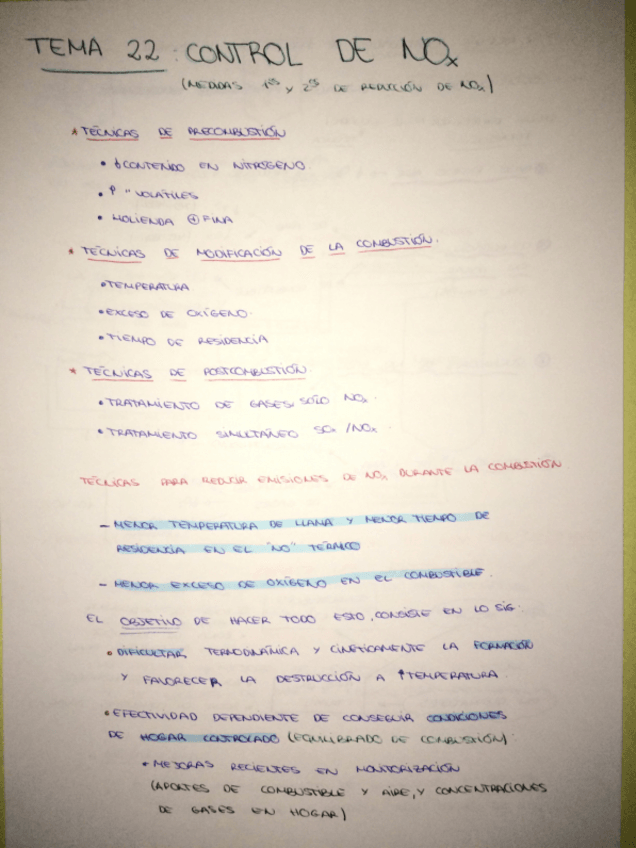 TEMA 22: CONTROL DE NOx
(MEDIDAS 1ªS y 2ªS DE REDUCCIÓN DE NOx)
* TÉCNICAS DE PRECOMBUSTIÓN
• ↓ CONTENIDO EN NITRÓGENO
• ↑ " VOLÁTILES
• MOLIENDA ⊕ FINA
* TÉCNICAS DE MODIFICACIÓN DE LA COMBUSTIÓN.
• TEMPERATURA
• EXCESO DE OXÍGENO.
• TIEMPO DE RESIDENCIA
* TÉCNICAS DE POSTCOMBUSTIÓN.
• TRATAMIENTO DE GASES, SÓLO NOx.
• TRATAMIENTO SIMULTÁNEO SOx/NOx
TÉCNICAS PARA REDUCIR EMISIONES DE NOx DURANTE LA COMBUSTIÓN
- MENOR TEMPERATURA DE LLAMA Y MENOR TIEMPO DE
RESIDENCIA EN EL "NO" TÉRMICO
- MENOR EXCESO DE OXÍGENO EN EL COMBUSTIBLE.
EL OBJETIVO DE HACER TODO ESTO, CONSISTE EN LO SIG:
• DIFICULTAR TERMODINÁMICA Y CINÉTICAMENTE LA FORMACIÓN
Y FAVORECER LA DESTRUCCIÓN A ↑TEMPERATURA.
• EFECTIVIDAD DEPENDIENTE DE CONSEGUIR CONDICIONES
DE HOGAR CONTROLADO (EQUILIBRADO DE COMBUSTIÓN)
• MEJORAS RECIENTES EN MONITORIZACIÓN
(APORTES DE COMBUSTIBLE Y AIRE, Y CONCENTRACIONES
DE GASES EN HOGAR)